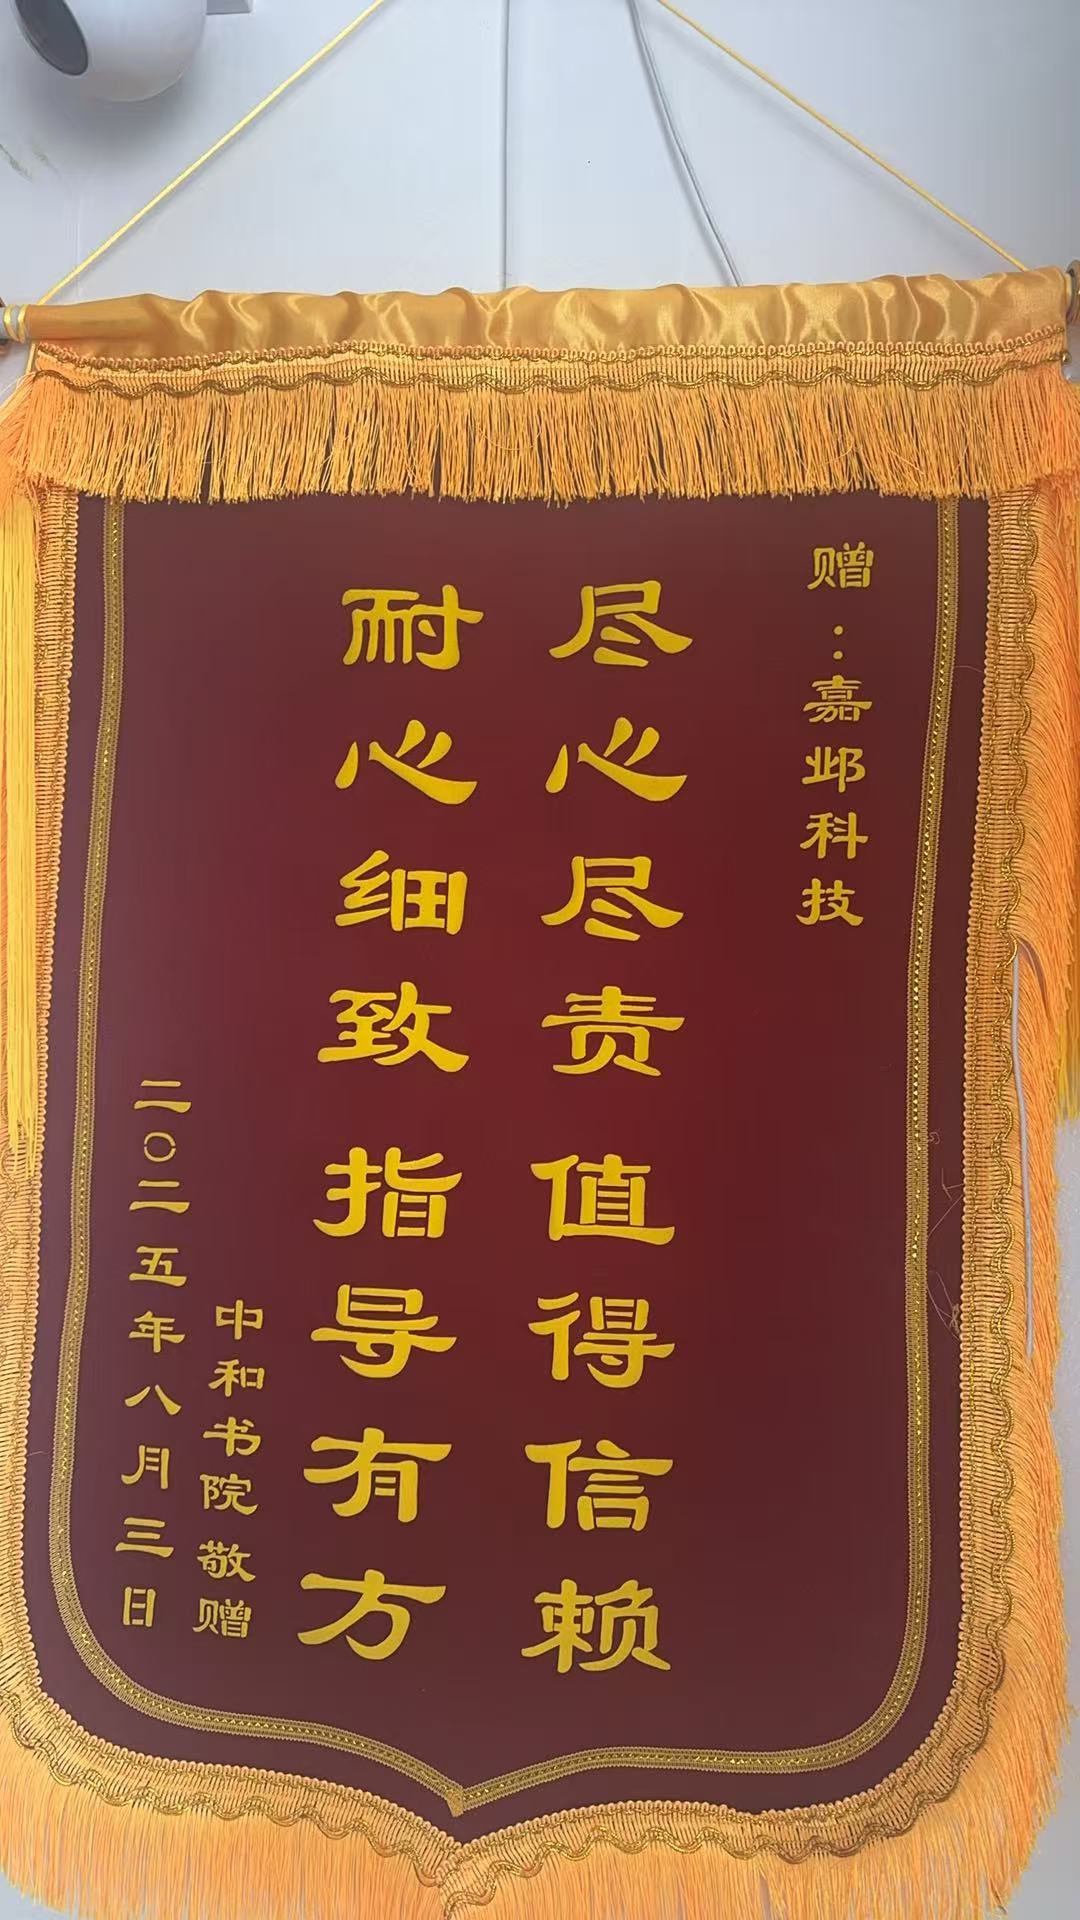 赠：嘉邺科技
尽心尽责 值得信赖
耐心细致 指导有方
中和书院敬赠
二〇二五年八月三日